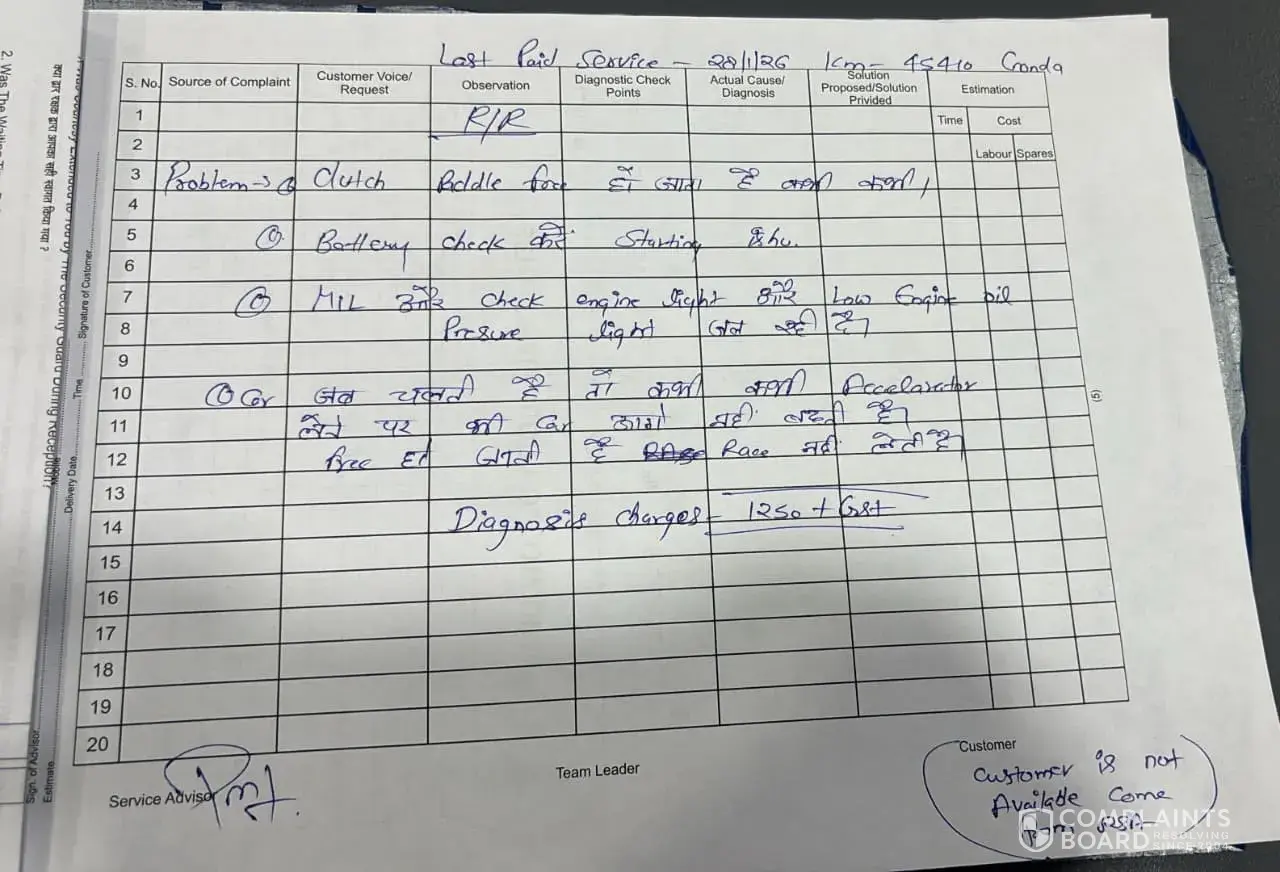 Last Paid Service - 28/1/26 Km- 45410 Gonda
S. No. Source of Complaint Customer Voice/ Request Observation Diagnostic Check Points Actual Cause/ Diagnosis Solution Proposed/Solution Privided Estimation
Time Cost
Labour Spares
1 R/R
2
3 Problem → Clutch Peddle free हो जाता है कभी कभी,
4
5 Battery check करें Starting
6
7 MIL और check engine light और Low Engine oil
8 Presure light जल रही है।
9
10 Car जब चलती है तो कभी कभी Accelarator
11 लेने पर भी Car आगे नहीं बढ़ती है।
12 free हो जाती है Race नहीं लेती है।
13
14 Diagnosis charges- 1250 + Gst
15
16
17
18
19
20
Service Advisor
Team Leader
Customer
Customer is not
Available Come
from RSA
(5)
2. Was The
Signature of Customer
Time
Delivery Date
Mobile
Sign. of Advisor
Estimate
COMPLAINTS
BOARD RESOLVING
SINCE 2004